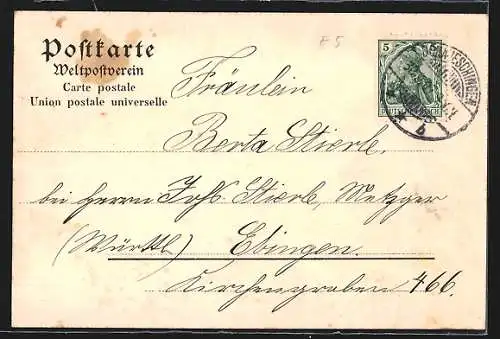 Postkarte
Weltpostverein
Carte postale
Union postale universelle
F5
5
Fräulein
Berta Stierle,
bei Herrn Johs. Stierle, Metzger
(Württ.) Ebingen.
Kirchengraben 466.
b